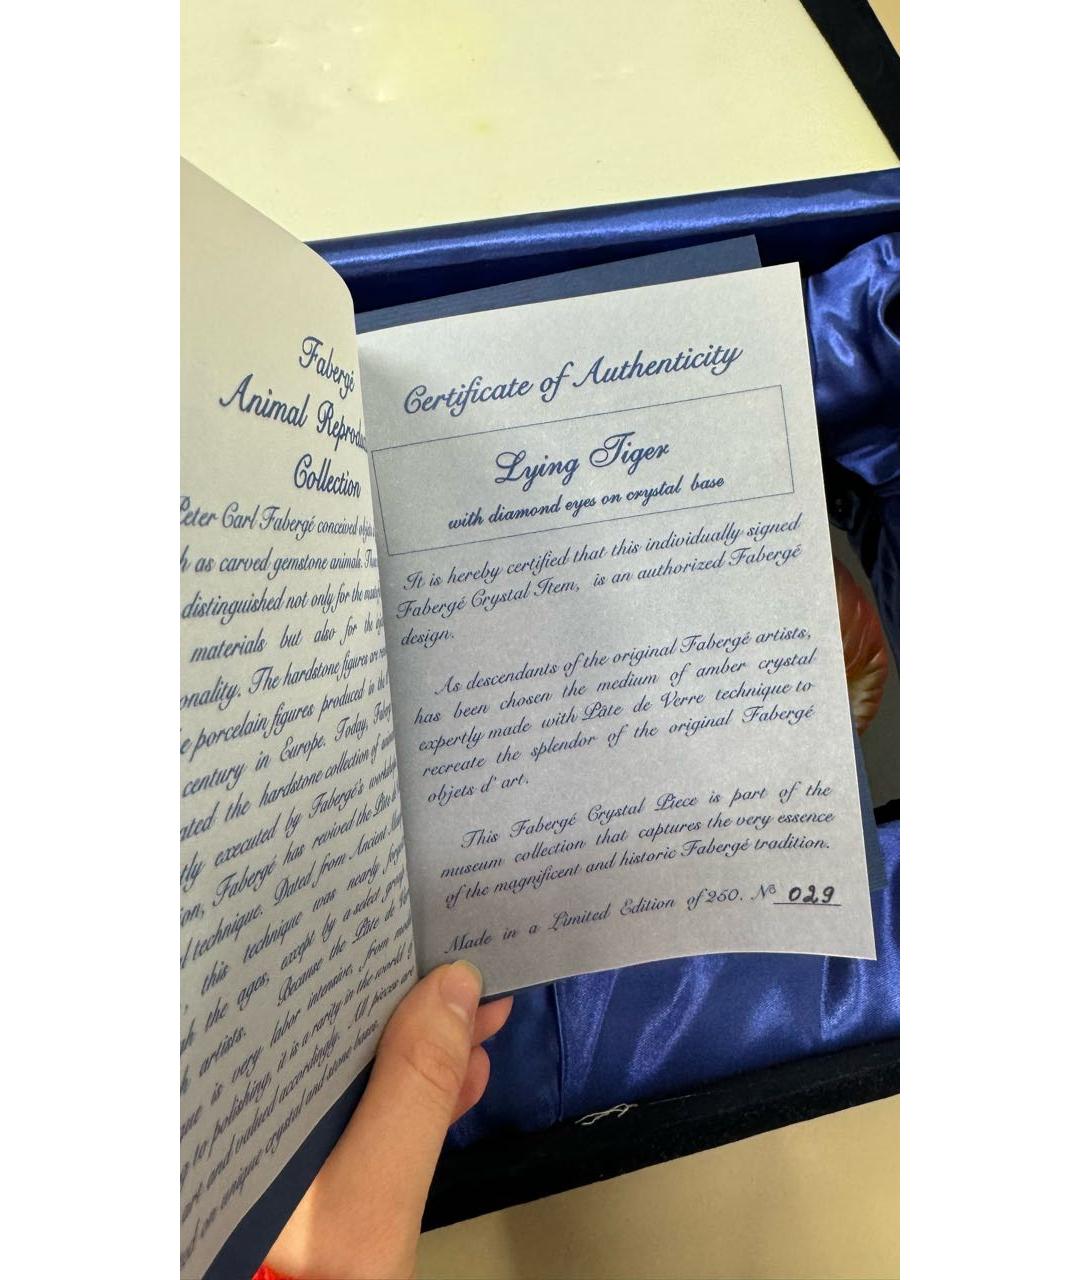 Fabergé
Animal
Collection
Peter Carl Fabergé conceived
as carved gemstone animals.
distinguished not only for the
materials but also for the
The hardstone figures are
porcelain figures produced in the
century in Europe. Today,
the hardstone collection of
executed by Fabergé's
Fabergé has revived the Pâte de
technique. Dated from Ancient
this technique was nearly
the ages, except by a select group
artists. Because the Pâte de
is very labor intensive, from
to polishing, it is a rarity in the world
art and valued accordingly. All pieces are
on unique crystal and stone bases.
Certificate of Authenticity
Lying Tiger
with diamond eyes on crystal base
It is hereby certified that this individually signed
Fabergé Crystal Item, is an authorized Fabergé
design.
As descendants of the original Fabergé artists,
has been chosen the medium of amber crystal
expertly made with Pâte de Verre technique to
recreate the splendor of the original Fabergé
objets d' art.
This Fabergé Crystal Piece is part of the
museum collection that captures the very essence
of the magnificent and historic Fabergé tradition.
Made in a Limited Edition of 250. № 029